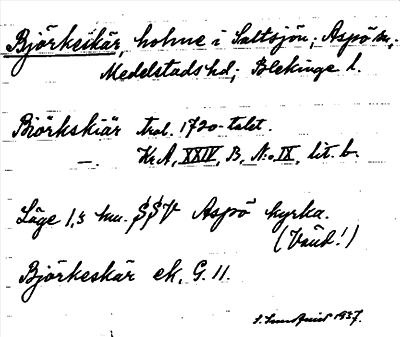 Björkeskär, holme i Saltsjön; Aspö sn;
Medelstads hd; Blekinge l.
Biörkskiär trol. 1720-talet.
—. Kr. A, XXIV, B, No. IX, lit. b.
Läge 1,5 km. SSV Aspö kyrka.
(Vänd!)
Björkeskär ek. G. 11.
1937.